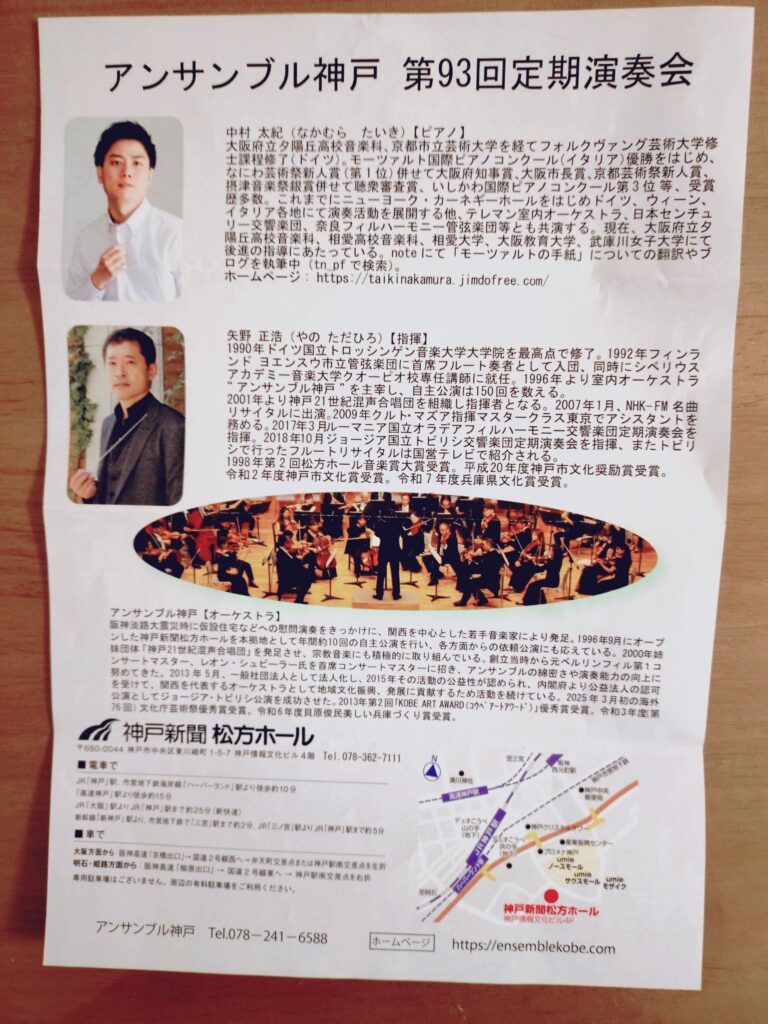 アンサンブル神戸 第93回定期演奏会
中村 太紀（なかむら たいき）【ピアノ】
大阪府立夕陽丘高校音楽科、京都市立芸術大学を経てフォルクヴァング芸術大学修
士課程修了(ドイツ)。モーツァルト国際ピアノコンクール(イタリア)優勝をはじめ、
なにわ芸術祭新人賞(第1位)併せて大阪府知事賞、大阪市長賞、京都芸術祭新人賞、
摂津音楽祭銀賞併せて聴衆審査賞、いしかわ国際ピアノコンクール第3位 等、受賞
歴多数。これまでにニューヨーク・カーネギーホールをはじめドイツ、ウィーン、
イタリア各地にて演奏活動を展開する他、テレマン室内オーケストラ、日本センチュ
リー交響楽団、奈良フィルハーモニー管弦楽団等とも共演する。現在、大阪府立夕
陽丘高校音楽科、相愛高校音楽科、相愛大学、大阪教育大学、武庫川女子大学にて
後進の指導にあたっている。noteにて「モーツァルトの手紙」についての翻訳やブ
ログを執筆中（tn_pfで検索）。
ホームページ：https://taikinakamura.jimdofree.com/
矢野 正浩（やの ただひろ）【指揮】
1990年ドイツ国立トロッシンゲン音楽大学大学院を最高点で修了。1992年フィンラ
ンド ヨエンスウ市立管弦楽団に首席フルート奏者として入団、同時にシベリウス
アカデミー音楽大学クオーピオ校専任講師に就任。1996年より室内オーケストラ
“アンサンブル神戸”を主宰し、自主公演は150回を数える。
2001年より神戸21世紀混声合唱団を組織し指揮者となる。2007年1月、NHK-FM 名曲
リサイタルに出演。2009年クルト・マズア指揮マスタークラス東京でアシスタントを
務める。2017年3月ルーマニア国立オラデアフィルハーモニー交響楽団定期演奏会を
指揮。2018年10月ジョージア国立トビリシ交響楽団定期演奏会を指揮、またトビリ
シで行ったフルートリサイタルは国営テレビで紹介される。
1998年第2回松方ホール音楽賞大賞受賞。平成20年度神戸市文化奨励賞受賞。
令和2年度神戸市文化賞受賞。令和7年度兵庫県文化賞受賞。
アンサンブル神戸【オーケストラ】
阪神淡路大震災時に仮設住宅などへの慰問演奏をきっかけに、関西を中心とした若手音楽家により発足。1996年9月にオープ
ンした神戸新聞松方ホールを本拠地として年間約10回の自主公演を行い、各方面からの依頼公演にも応えている。2000年姉
妹団体「神戸21世紀混声合唱団」を発足させ、宗教音楽にも積極的に取り組んでいる。創立当時から元ベルリンフィル第1コ
ンサートマスター、レオン・シュピーラー氏を首席コンサートマスターに招き、アンサンブルの綿密さや演奏能力の向上に
努めてきた。2013年5月、一般社団法人として法人化し、2015年その活動の公益性が認められ、内閣府より公益法人の認可
を受けて、関西を代表するオーケストラとして地域文化振興、発展に貢献するため活動を続けている。2025年3月初の海外
公演としてジョージア・トビリシ公演を成功させた。2013年第2回「KOBE ART AWARD（ｺｳﾍﾞｱｰﾄｱﾜｰﾄﾞ）」優秀賞受賞。令和3年度(第
76回)文化庁芸術祭優秀賞受賞。令和6年度貝原俊民美しい兵庫づくり賞受賞。
神戸新聞 松方ホール
〒650-0044 神戸市中央区東川崎町1-5-7 神戸情報文化ビル4階 Tel. 078-362-7111
■電車で
JR「神戸」駅、市営地下鉄海岸線「ハーバーランド」駅より徒歩約10分
「高速神戸」駅より徒歩約15分
JR「大阪」駅よりJR「神戸」駅まで約25分(新快速)
新幹線「新神戸」駅より、市営地下鉄で「三宮」駅まで約2分、JR「三ノ宮」駅よりJR「神戸」駅まで約5分
■車で
大阪方面から：阪神高速「京橋出口」→国道2号線西へ→弁天町交差点または神戸駅南交差点を左折
明石・姫路方面から：阪神高速「柳原出口」→国道2号線東へ→神戸駅南交差点を右折
専用駐車場はございません。周辺の有料駐車場をご利用ください。
N
至三宮
阪神
西元町駅
神戸市営地下鉄
湊川神社
高速神戸駅
神戸中央
郵便局
デュオこうべ
山の手
(地下)
JR神戸駅
神戸クリスタルタワー
産業振興センター
デュオこうべ
浜の手
(地下)
プロメナ神戸
ハーバーランド駅
umie
ノースモール
umie
サウスモール
umie
モザイク
至明石
神戸新聞松方ホール
神戸情報文化ビル4F
アンサンブル神戸 Tel.078-241-6588
ホームページ https://ensemblekobe.com